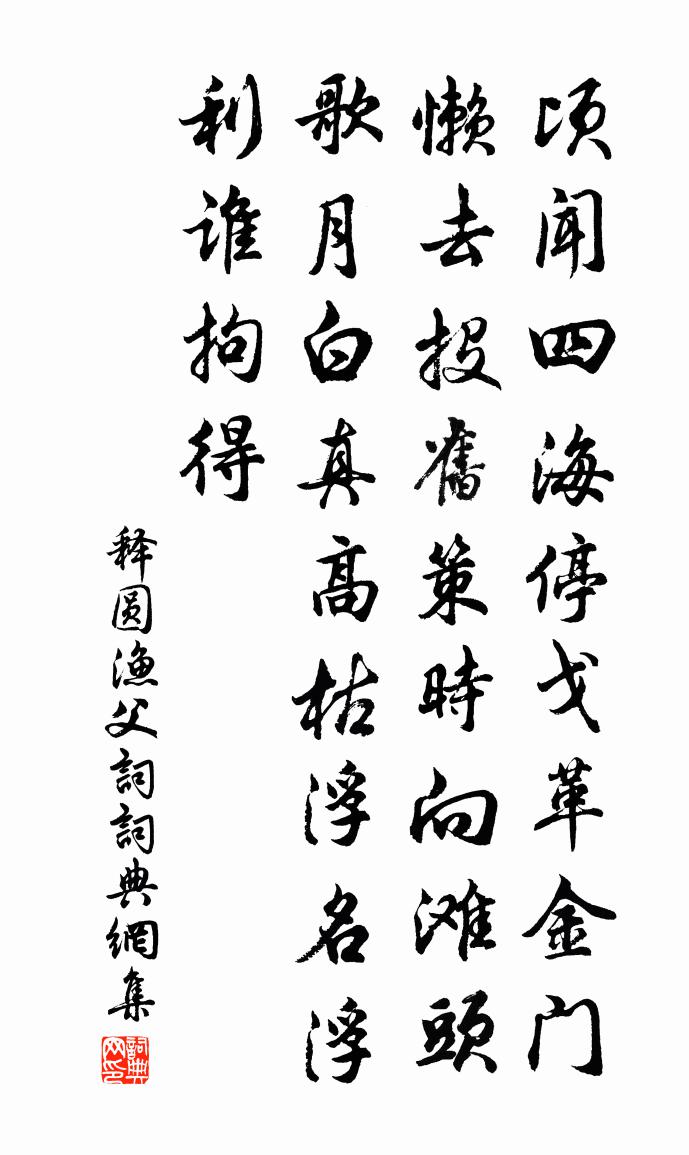 顷闻四海停戈革金门
懒去投旧策時向滩頭
歌月白真高枯浮名浮
利谁拘得
释圆渔父詞詞典網集
詞典网印